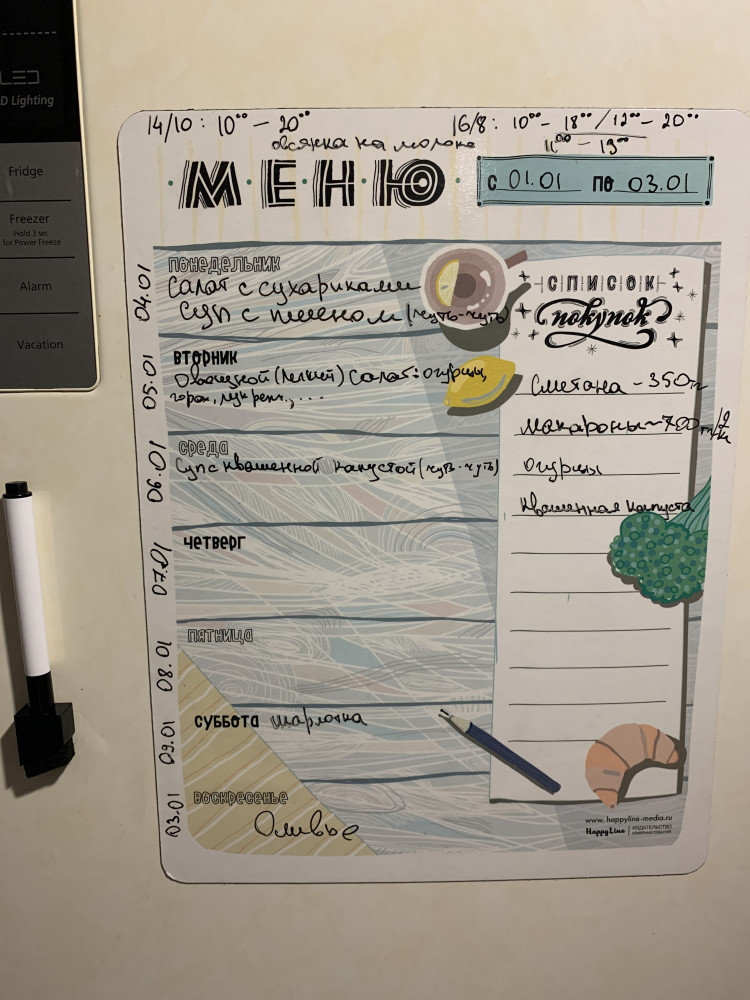 LED
D Lighting
Fridge
Freezer
Hold 3 sec
for Power Freeze
Alarm
Vacation
14/10: 10⁰⁰ – 20⁰⁰
16/8: 10⁰⁰ – 18⁰⁰ / 12⁰⁰ – 20⁰⁰
овсянка на молоке
11⁰⁰ – 19⁰⁰
МЕНЮ
С 01.01 ПО 03.01
04.01
ПОНЕДЕЛЬНИК
Салат с сухариками
Суп с пшеном (чуть-чуть)
05.01
ВТОРНИК
Овощной (легкий) салат: огурцы,
горох, лук репч., ...
06.01
СРЕДА
Суп с квашенной капустой (чуть-чуть)
07.01
ЧЕТВЕРГ
08.01
ПЯТНИЦА
09.01
СУББОТА шарлотка
03.01
ВОСКРЕСЕНЬЕ
Оливье
СПИСОК
покупок
Сметана – 350 г
макароны – 700 г
огурцы
Квашенная капуста
www.happyline-media.ru
HappyLine
ИЗДАТЕЛЬСТВО